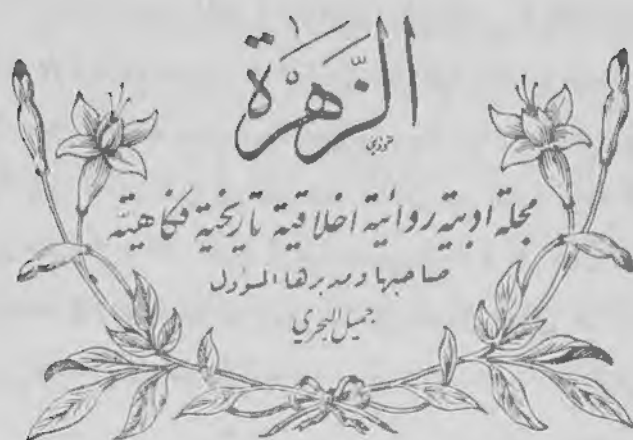 الزهرة
مجلة ادبية روائية اخلاقية تاريخية فكاهية
صاحبها ومديرها المسؤول
جميل البحري